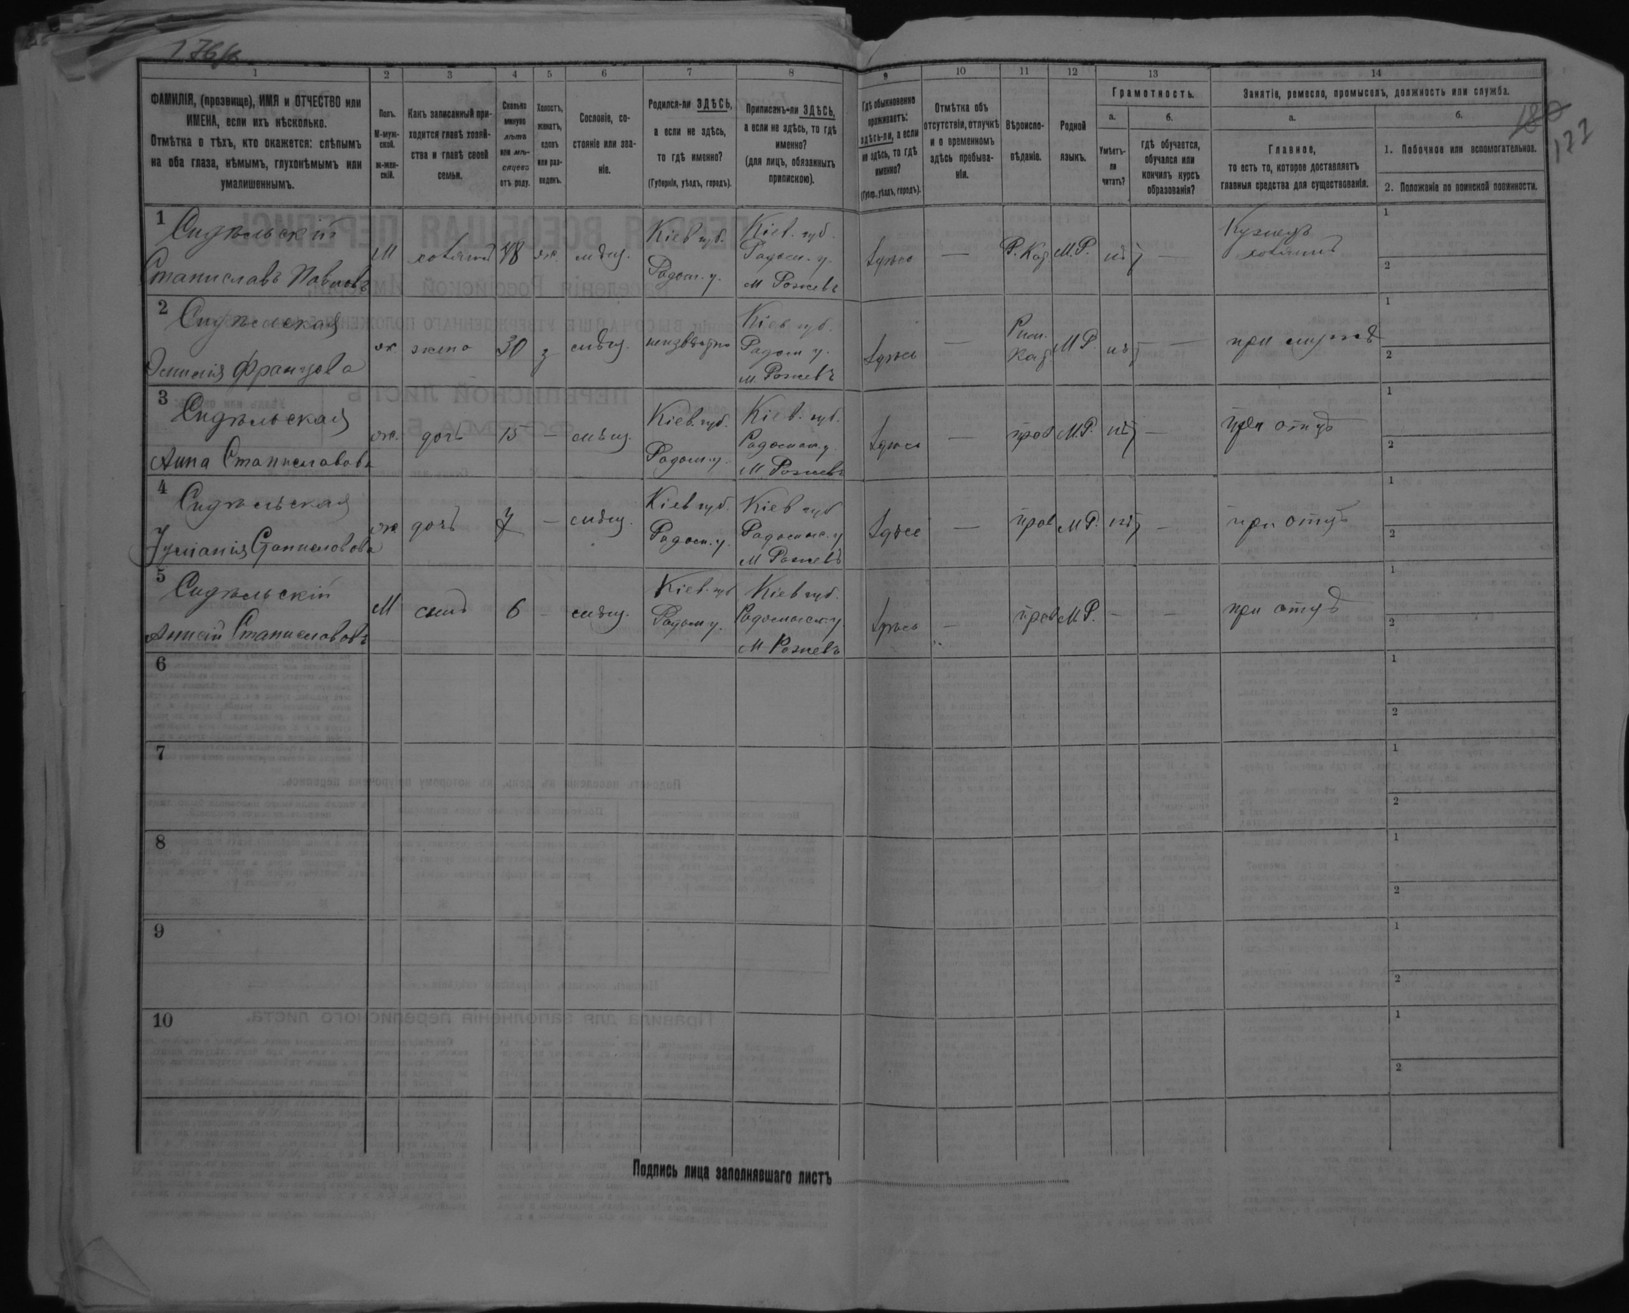 1 2 3 4 5 6 7 8 9 10 11 12 13 14
ФАМИЛІЯ, (прозвище), ИМЯ и ОТЧЕСТВО или
ИМЕНА, если ихъ нѣсколько.
Отмѣтка о тѣхъ, кто окажется: слѣпымъ
на оба глаза, нѣмымъ, глухонѣмымъ или
умалишеннымъ.
Полъ.
М-муж-
ской.
ж-жен-
скій.
Какъ записанный при-
ходится главѣ хозяй-
ства и главѣ своей
семьи.
Сколько
минуло
лѣтъ
или мѣ-
сяцевъ
отъ роду.
Холостъ,
женатъ,
вдовъ
или раз-
веденъ.
Сословіе, со-
стояніе или зва-
ніе.
Родился-ли ЗДѢСЬ,
а если не здѣсь,
то гдѣ именно?
(Губернія, уѣздъ, городъ).
Приписанъ-ли ЗДѢСЬ,
а если не здѣсь, то гдѣ
именно?
(для лицъ, обязанныхъ
припискою).
Гдѣ обыкновенно
проживаетъ:
здѣсь-ли, а если
не здѣсь, то гдѣ
именно?
(Губер., уѣздъ, городъ).
Отмѣтка объ
отсутствіи, отлучкѣ
и о временномъ
здѣсь пребыва-
ніи.
Вѣроиспо-
вѣданіе.
Родной
языкъ.
Грамотность.
а.
Умѣетъ-
ли
читать?
б.
гдѣ обучается,
обучался или
кончилъ курсъ
образованія?
Занятіе, ремесло, промыселъ, должность или служба.
а.
Главное,
то есть то, которое доставляетъ
главныя средства для существованія.
б.
1. Побочное или вспомогательное.
2. Положеніе по воинской повинности.
180
177
1
Сидѣльскій
Станиславъ Павловъ
М
хозяинъ
48
ж
мѣщ.
Кіев. губ.
Радом. у.
Кіев. губ.
Радом. у.
м Рожевъ
Здѣсь
—
Р. Каѳ
М.Р.
нѣт
—
Кузнецъ
хозяинъ
1
2
2
Сидѣльская
Францова
ж
жена
30
з
мѣщ.
неизвѣстно
Кіев. губ.
Радом у.
м. Рожевъ
Здѣсь
—
Рим.
Каѳ
М Р
нѣт
—
при мужѣ
1
2
3
Сидѣльская
Анна Станиславова
ж.
дочь
15
—
мѣщ.
Кіев. губ.
Радом. у.
Кіев. губ.
Радомыс. у
м. Рожевъ
Здѣсь
—
прав
М.Р.
нѣт
—
при отцѣ
1
2
4
Сидѣльская
Станиславова
ж
дочь
7
—
мѣщ.
Кіев губ.
Радом. у.
Кіев губ
Радомыс. у
м Рожевъ
Здѣсь
—
прав
М Р.
нѣт
—
при отцѣ
1
2
5
Сидѣльскій
Станиславовъ
М
сынъ
6
—
мѣщ.
Кіев. губ
Радом у.
Кіев губ.
Радомысск. у
м Рожевъ
Здѣсь
—
прав
М Р.
—
—
при отцѣ
1
2
6
1
2
7
1
2
8
1
2
9
1
2
10
1
2
Подпись лица заполнявшаго листъ